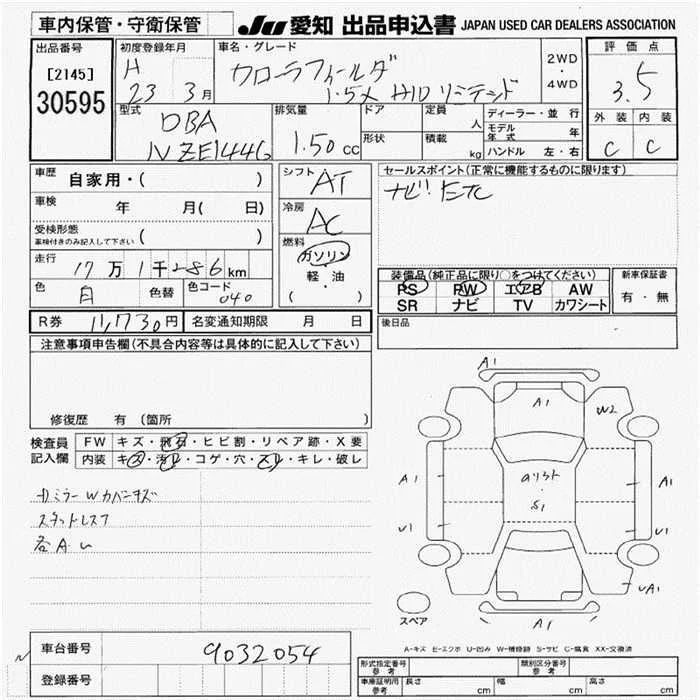 車内保管・守衛保管
JU 愛知 出品申込書 JAPAN USED CAR DEALERS ASSOCIATION
出品番号
[2145]
30595
初度登録年月
H 23 3月
車名・グレード
カローラフィールダ
1.5X HIDリミテッド
2WD
・
4WD
評価点
3.5
外装 内装
C C
型式
DBA
NZE144G
排気量
1.50 cc
ドア
形状
定員 人
積載 kg
ディーラー・並行
モデル年式 年
ハンドル 左・右
車歴 自家用・( )
車検 年 月( 日)
受検形態
車検付きのみ記入して下さい ( )
走行 17万1千286km
色 白 色替 色コード 040
シフト AT
冷房 AC
燃料
ガソリン
軽・油
( )
セールスポイント(正常に機能するものに限ります)
ナビ! ETC
装備品(純正品に限り○をつけてください)
PS PW エアB AW
SR ナビ TV カワシート
新車保証書
有・無
R券 11,730円 名変通知期限 月 日
後日品
注意事項申告欄(不具合内容等は具体的に記入して下さい)
修復歴 有(箇所 )
検査員記入欄
FW キズ・飛石・ヒビ割・リペア跡・X要
内装 キズ・汚れ・コゲ・穴・スレ・キレ・破レ
カミラーWカバーキズ
スタットレス7
各AU
A1
A1
W2
A1
A1
S1
U1
U1
UA1
A1
スペア
A-キズ E-エクボ U-凹み W-補修跡 S-サビ C-腐食 XX-交換済
車台番号 9032054
登録番号
形式指定番号 参考
類別区分番号 参考
車庫証明用 参考 長さ cm 幅 cm 高さ cm